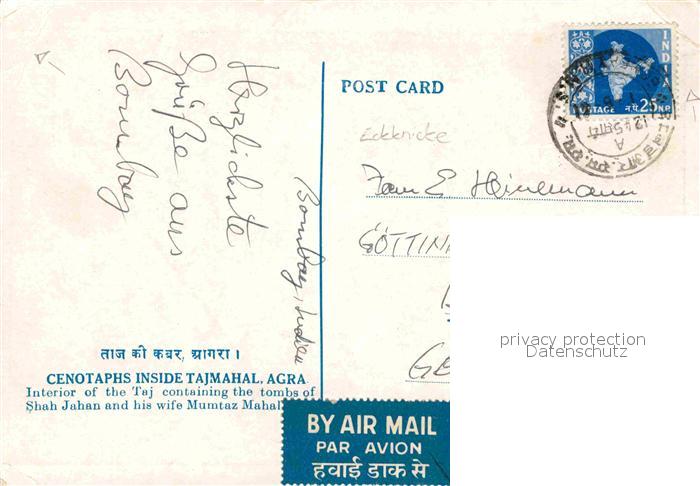 Herzlichste
Grüße aus
Bombay
Bombay, Indien
ताज की कबर, आगरा।
CENOTAPHS INSIDE TAJMAHAL, AGRA
Interior of the Taj containing the tombs of
Shah Jahan and his wife Mumtaz Mahal
POST CARD
Eckknicke
Fam E Heinemann
GÖTTIN
GE
INDIA
POSTAGE न.पै. 25 N.P.
1245
A
privacy protection
Datenschutz
BY AIR MAIL
PAR AVION
हवाई डाक से